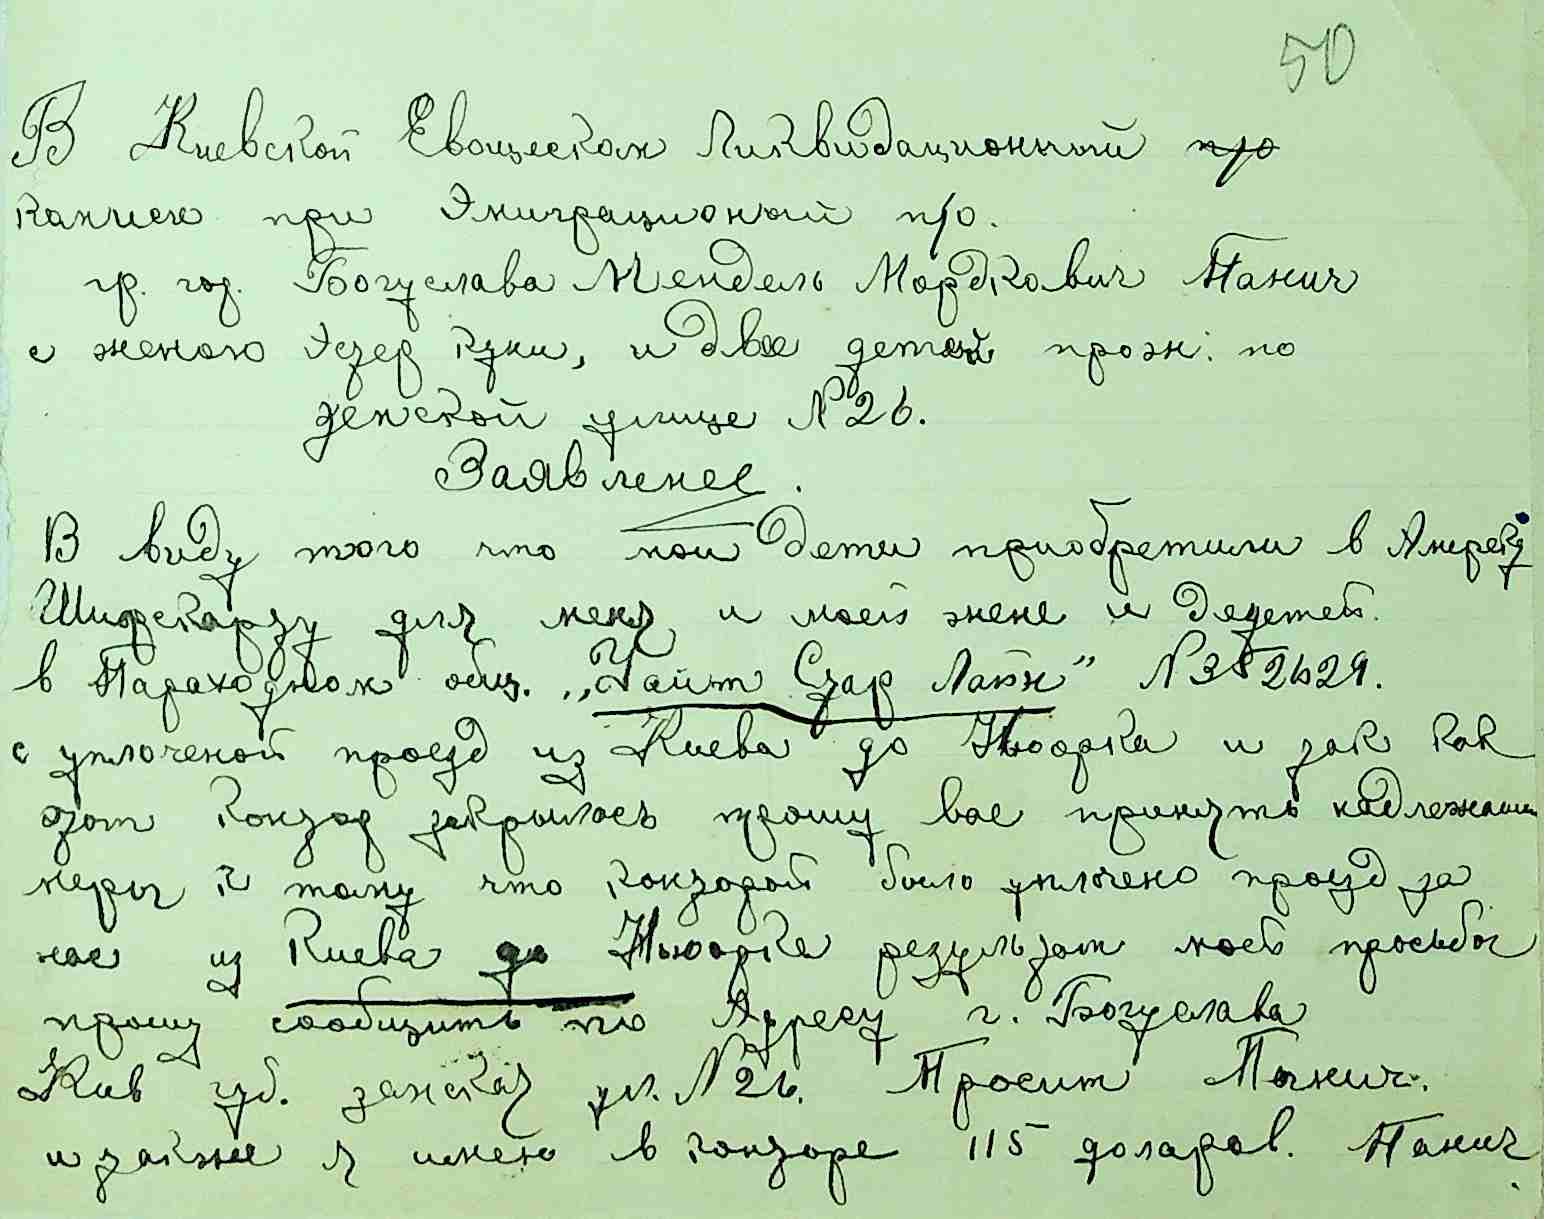 50
В Киевской Евоцеском Ликвидационный п/о
камисе при Эмиграционый п/о.
гр. гор. Богуслава Мендель Мордкович Панич
с женою Эзер Куни, и двое детей прож: по
земской улице N 26.
Заявление.
В виду того что мои дети приобретили в Амреку
Шифскарту для меня и моей жене и детей.
в Параходном общ. „Уайт Стар Лайн" N 352629.
с уплоченой проезд из Киева до Нюорка и так как
этот контор закрылась прошу вас принять надлежащи
меры к тому что конторой было уплочено проезд за
нас из Киева до Нюорка результат моей просьбы
прошу сообщить по Адресу г. Богуслава
Кив губ. земская ул. N 26. Просит Панич.
и также я имею в конторе 115 доларов. Панич.